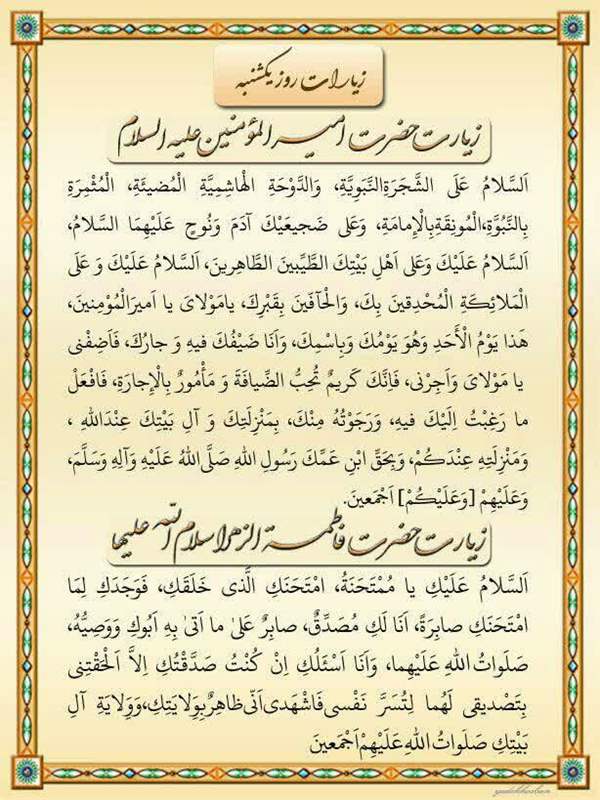 زیارات روز یکشنبه
زیارت حضرت امیرالمؤمنین علیه السلام
اَلسَّلامُ عَلَی الشَّجَرَةِالنَّبَوِیَّةِ، وَالدَّوْحَةِ الْهاشِمِیَّةِ الْمُضیئَةِ، الْمُثْمِرَةِ
بِالنَّبُوَّةِ،الْمُونِقَةِبِالْاِمامَةِ، وَعَلی ضَجیعَیْكَ آدَمَ وَنُوحٍ عَلَیْهِمَا السَّلامُ،
اَلسَّلامُ عَلَیْكَ وَعَلی اَهْلِ بَیْتِكَ الطَّیِّبینَ الطَّاهِرینَ، اَلسَّلامُ عَلَیْكَ وَ عَلَی
الْمَلائِكَةِ الْمُحْدِقینَ بِكَ، وَالْحآفّینَ بِقَبْرِكَ، یامَوْلایَ یا اَمیرَالْمُؤْمِنینَ،
هَذا یَوْمُ الْأَحَدِ وَهُوَ یَوْمُكَ وَبِاسْمِكَ، وَاَنَا ضَیْفُكَ فیهِ وَ جارُكَ، فَاَضِفْنی
یا مَوْلایَ وَاَجِرْنی، فَاِنَّكَ كَریمٌ تُحِبُّ الضِّیافَةَ وَ مَأْمُورٌ بِالْإِجارَةِ، فَافْعَلْ
ما رَغِبْتُ اِلَیْكَ فیهِ، وَرَجَوْتُهُ مِنْكَ، بِمَنْزِلَتِكَ وَ آلِ بَیْتِكَ عِنْدَاللهِ ،
وَمَنْزِلَتِهِ عِنْدَكُمْ، وَبِحَقِّ ابْنِ عَمِّكَ رَسُولِ اللهِ صَلَّی اللهُ عَلَیْهِ وَآلِهِ وَسَلَّمَ،
وَعَلَیْهِمْ [وَعَلَیْكُمْ] اَجْمَعینَ.
زیارت حضرت فاطمة الزهرا سلام الله علیها
اَلسَّلامُ عَلَیْكِ یا مُمْتَحَنَةُ، امْتَحَنَكِ الَّذی خَلَقَكِ، فَوَجَدَكِ لِمَا
امْتَحَنَكِ صابِرَةً، اَنَا لَكِ مُصَدِّقٌ، صابِرٌ عَلیٰ ما اَتیٰ بِهِ اَبُوكِ وَوَصِیُّهُ،
صَلَواتُ اللهِ عَلَیْهِما، وَاَنَا اَسْئَلُكِ اِنْ كُنْتُ صَدَّقْتُكِ اِلاَّ اَلْحَقْتِنی
بِتَصْدیقی لَهُما لِتُسَرَّ نَفْسی فَاشْهَدی اَنّی ظاهِرٌبِوِلایَتِكِ،وَوِلایَةِ آلِ
بَیْتِكِ صَلَواتُ اللهِ عَلَیْهِمْ اَجْمَعینَ